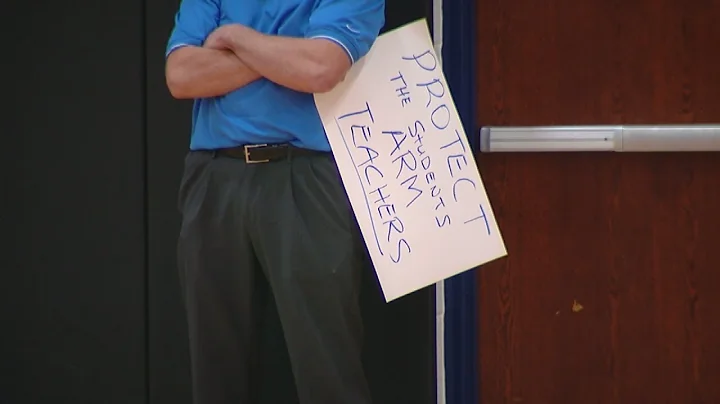 PROTECT
THE STUDENTS
ARM
TEACHERS